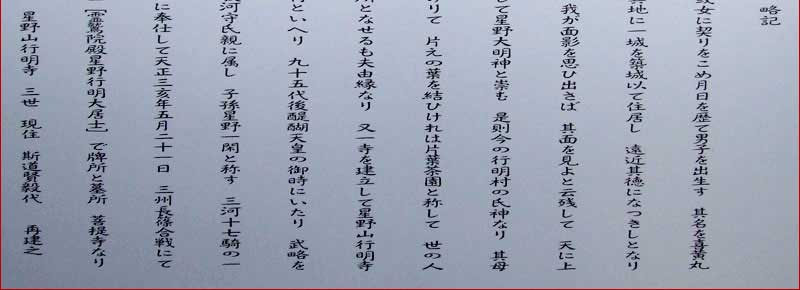 略記
女に契りをこめ月日を歴て男子を出生す 其名を喜黄丸
地に一城を築城以て住居し 遠近其徳になつきしとなり
我が面影を思ひ出さば 其面を見よと云残して 天に上
して星野大明神と崇む 是則今の行明村の氏神なり 其母
のりて 片えの葉を結ひけれは片葉茶園と称して 世の人
所となせるも夫由縁なり 又一寺を建立して星野山行明寺
行といへり 九十五代後醍醐天皇の御時にいたり 武略を
河守氏親に属し 子孫星野一閑と称す 三河十七騎の一
に奉仕して天正三亥年五月二十一日 三州長篠合戦にて
【霊鷲院殿星野行明大居士】で牌所と墓所 菩提寺なり
星野山行明寺 三世 現住 斯道賢毅代 再建之